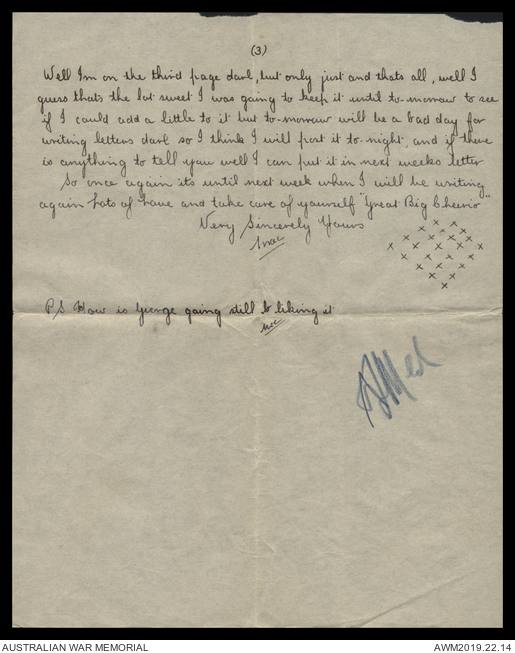 (3)
Well Im on the third page darl, but only just and thats all, well I
guess thats the lot sweet I was going to keep it until to-morrow to see
if I could add a little to it but to-morrow will be a bad day for
writing letters darl so I think I will post it to-night, and if there
is anything to tell you well I can put it in next weeks letter
So once again its until next week when I will be writing
again Lots of Love and take care of yourself "Great Big Cheerio"
Very Sincerely Yours
Mac
PS How is George going still liking it
Mac
AUSTRALIAN WAR MEMORIAL
AWM2019.22.14